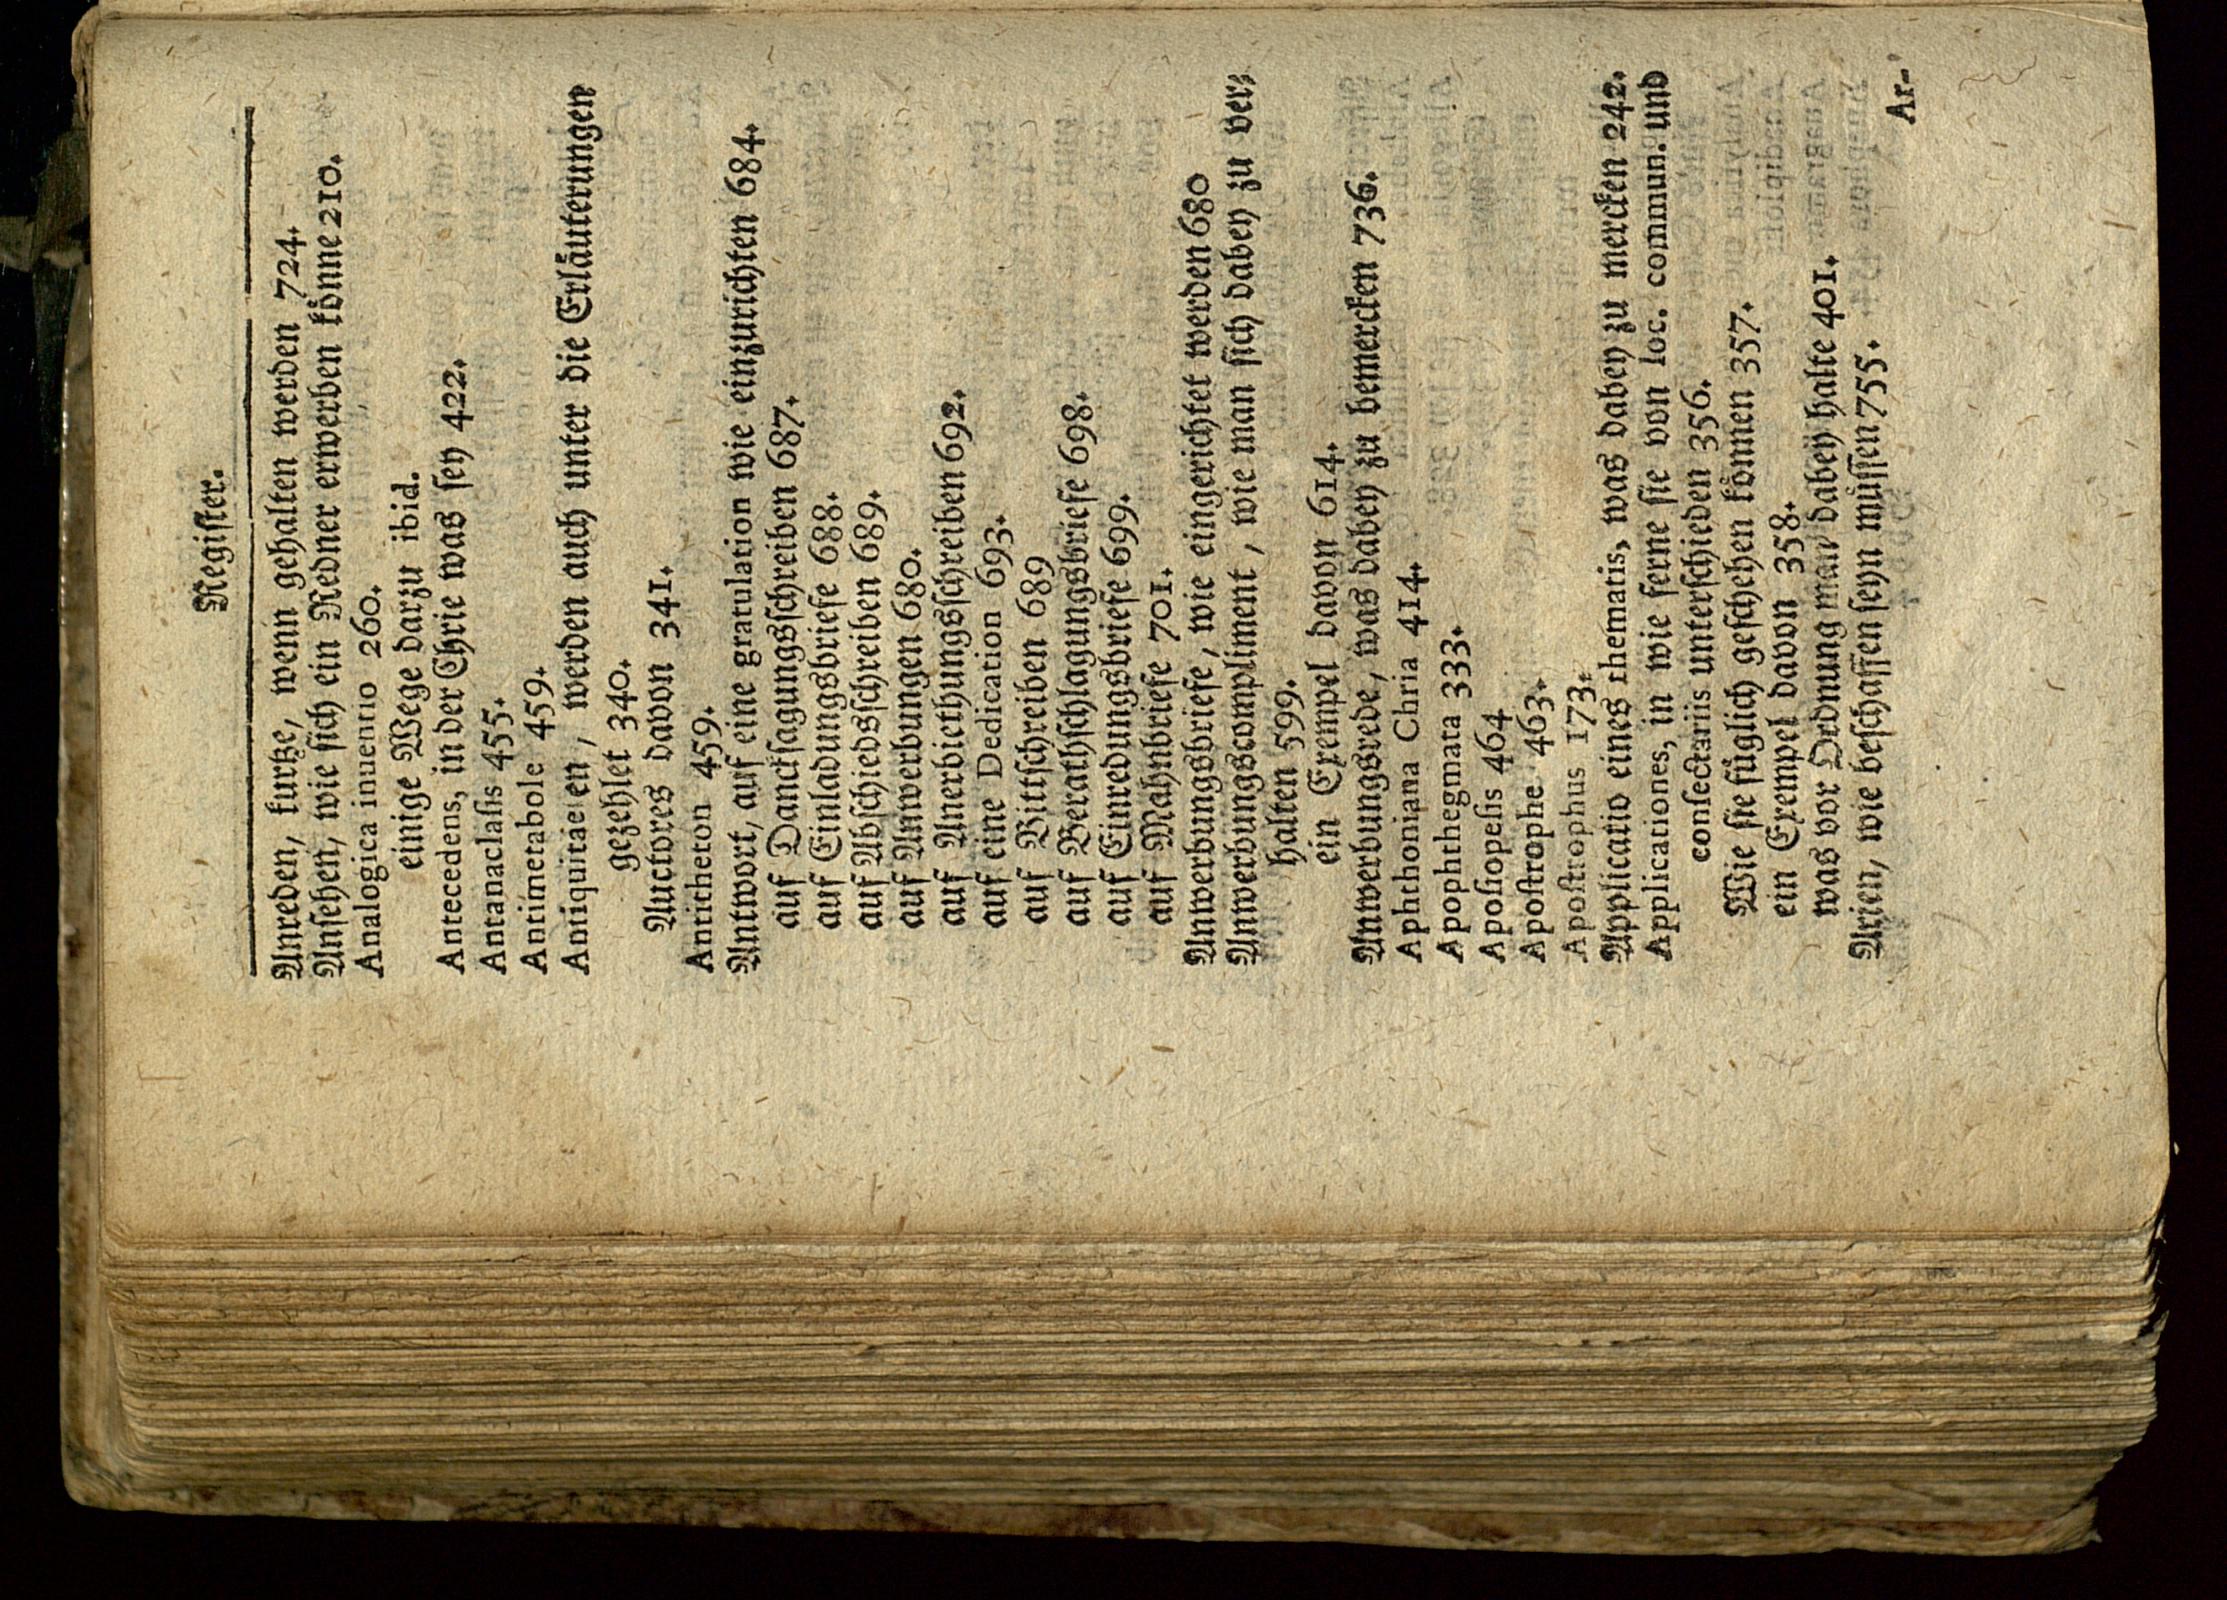 Regiſter.
Anreden, kurtze, wenn gehalten werden 724.
Anſehen, wie ſich ein Redner erwerben koͤnne 210.
Analogica inuentio 260.
einige Wege darzu ibid.
Antecedens, in der Chrie was ſey 422.
Antanaclaſis 455.
Antimetabole 459.
Antiquitaeten, werden auch unter die Erlaͤuterungen
gezehlet 340.
Auctores davon 341.
Antitheton 459.
Antwort, auf eine gratulation wie einzurichten 684.
auf Danckſagungsſchreiben 687.
auf Einladungsbriefe 688.
auf Abſchiedsſchreiben 689.
auf Anwerbungen 680.
auf Anerbiethungsſchreiben 692.
auf eine Dedication 693.
auf Bittſchreiben 689
auf Berathſchlagungsbriefe 698.
auf Einredungsbriefe 699.
auf Mahnbriefe 701.
Anwerbungsbriefe, wie eingerichtet werden 680
Anwerbungscompliment, wie man ſich dabey zu ver⸗
halten 599.
ein Exempel davon 614.
Anwerbungsrede, was dabey zu bemercken 736.
Aphthoniana Chria 414.
Apophthegmata 333.
Apoſiopeſis 464
Apoſtrophe 463.
Apoſtrophus 173.
Applicatio eines thematis, was dabey zu mercken 242.
Applicationes, in wie ferne ſie von loc. commun. und
conſectariis unterſchieden 356.
Wie ſie fuͤglich geſchehen koͤnnen 357.
ein Exempel davon 358.
was vor Ordnung man dabey halte 401.
Arien, wie beſchaffen ſeyn muͤſſen 755.
Ar-